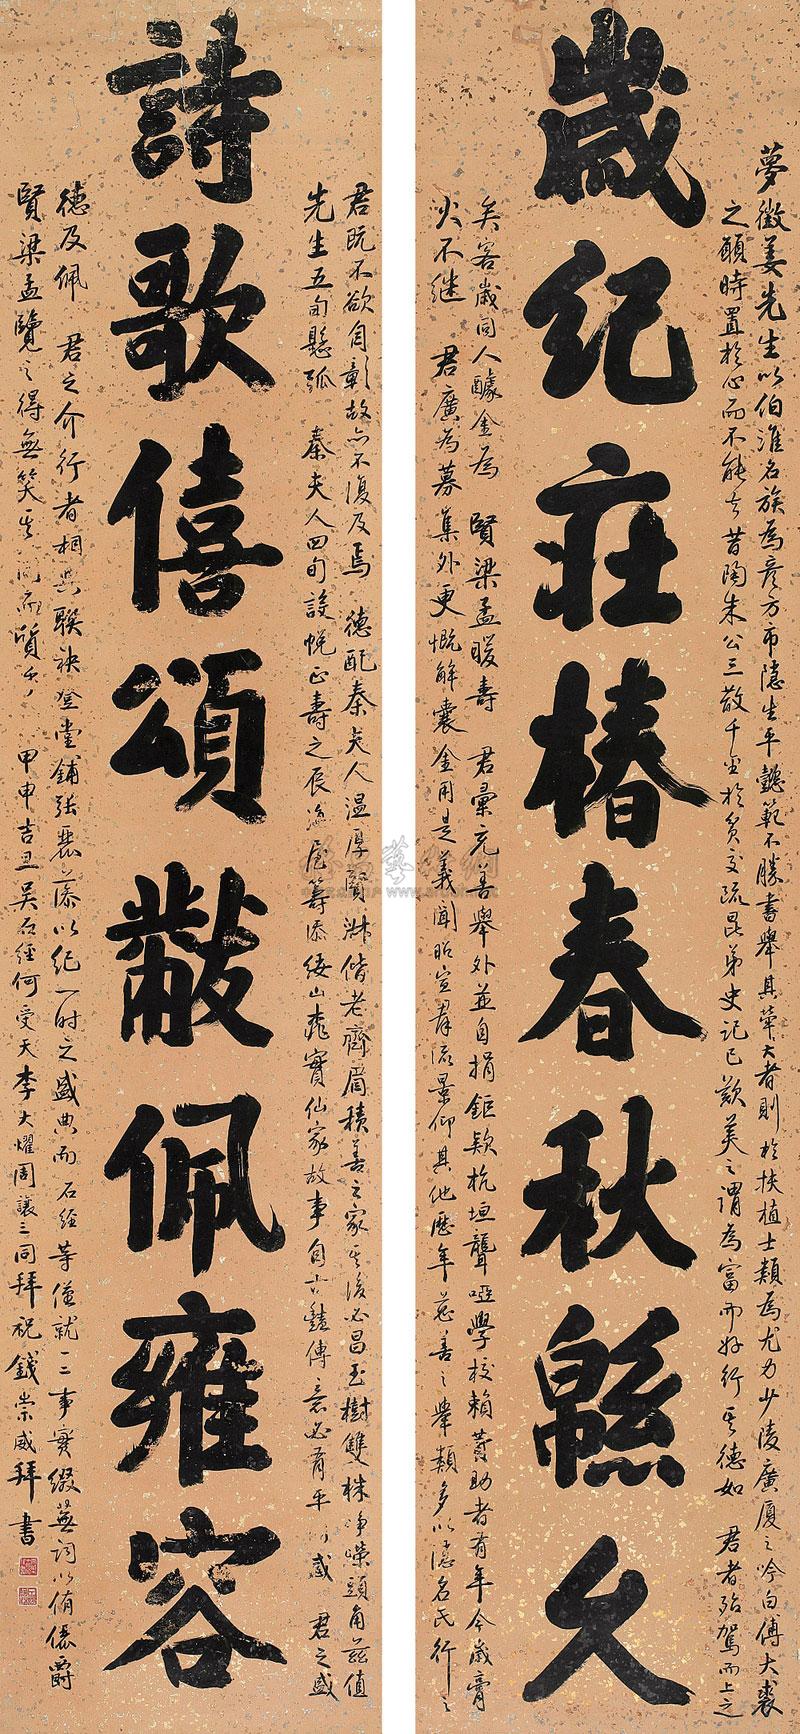 歲紀莊椿春秋緜久
夢徵姜先生以伯淮名族為彥方市隱生平懿範不勝書舉其犖大者則於扶植士類為尤力少陵廣厦之吟白傅大裘
之願時置於心而不能去昔陶朱公三散千金於貧交疏昆弟史記已歎美之謂為富而好行其德如 君者殆駕而上之
矣客歲同人醵金為 賢梁孟暖壽 君彙充善舉外並自捐鉅欵杭垣聾啞學校賴資助者有年今歲膏
火不继 君廣為募集外更慨解囊金用是義聞昭宣羣流景仰其他歷年慈善之舉類多以隱名氏行之
詩歌僖頌黻佩雍容
君既不欲自彰故亦不復及焉 德配秦夫人温厚賢淑偕老齊眉積善之家其後必昌玉樹雙株崢嶸頭角茲值
先生五旬懸弧 秦夫人四旬設帨正壽之辰海屋籌添緌山桃實仙家故事自古豔傳意必有乎 感 君之盛
德及佩 君之介行者相與聯袂登堂鋪張叢藻以紀一时之盛典而 石經等僅就一二事實綴蕪詞以侑僖爵
賢梁孟覽之得無笑其 而質乎 甲申吉旦吳石經何受天李大燿周讓三同拜祝 錢崇威拜書